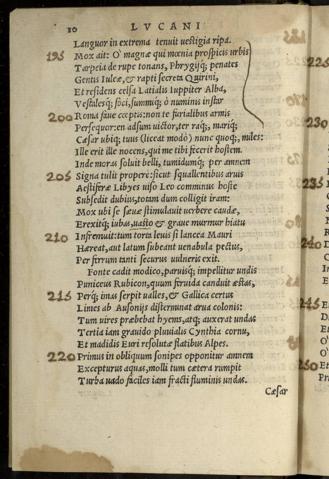 10 LVCANI
Languor in extrema tenuit uestigia ripa.
195 Mox ait: O' magnæ qui mœnia prospicis urbis
Tarpeia de rupe tonans, Phrygijq; penates
Gentis Iuleæ, & rapti secreta Quirini,
Et residens celsa Latialis Iuppiter Alba,
Vestalesq; foci, summiq; ô numinis instar
200 Roma faue cœptis: non te furialibus armis
Persequor: en adsum uictor, terraq;, mariq;
Cæsar ubiq; tuus (liceat modò) nunc quoq;, miles:
Ille erit ille nocens, qui me tibi fecerit hostem.
Inde moras soluit belli, tumidumq; per amnem
205 Signa tulit properè: sicut squallentibus aruis
Aestiferæ Libyes uiso Leo comminus hoste
Subsedit dubius, totam dum colligit iram:
Mox ubi se sæuæ stimulauit uerbere caudæ,
Erexitq; iubas, uasto & graue murmur hiatu
210 Infremuit: tum torta leuis si lancea Mauri
Hæreat, aut latum subeant uenabula pectus,
Per ferrum tanti securus uulneris exit.
Fonte cadit modico, paruisq; impellitur undis
Puniceus Rubicon, quum feruida canduit æstas,
215 Perq; imas serpit ualles, & Gallica certus
Limes ab Ausonijs disterminat arua colonis:
Tum uires præbebat hyems, atq; auxerat undas
Tertia iam grauido pluuialis Cynthia cornu,
Et madidis Euri resolutæ flatibus Alpes.
220 Primus in obliquum sonipes opponitur amnem
Excepturus aquas, molli tum cætera rumpit
Turba uado faciles iam fracti fluminis undas.
Cæsar